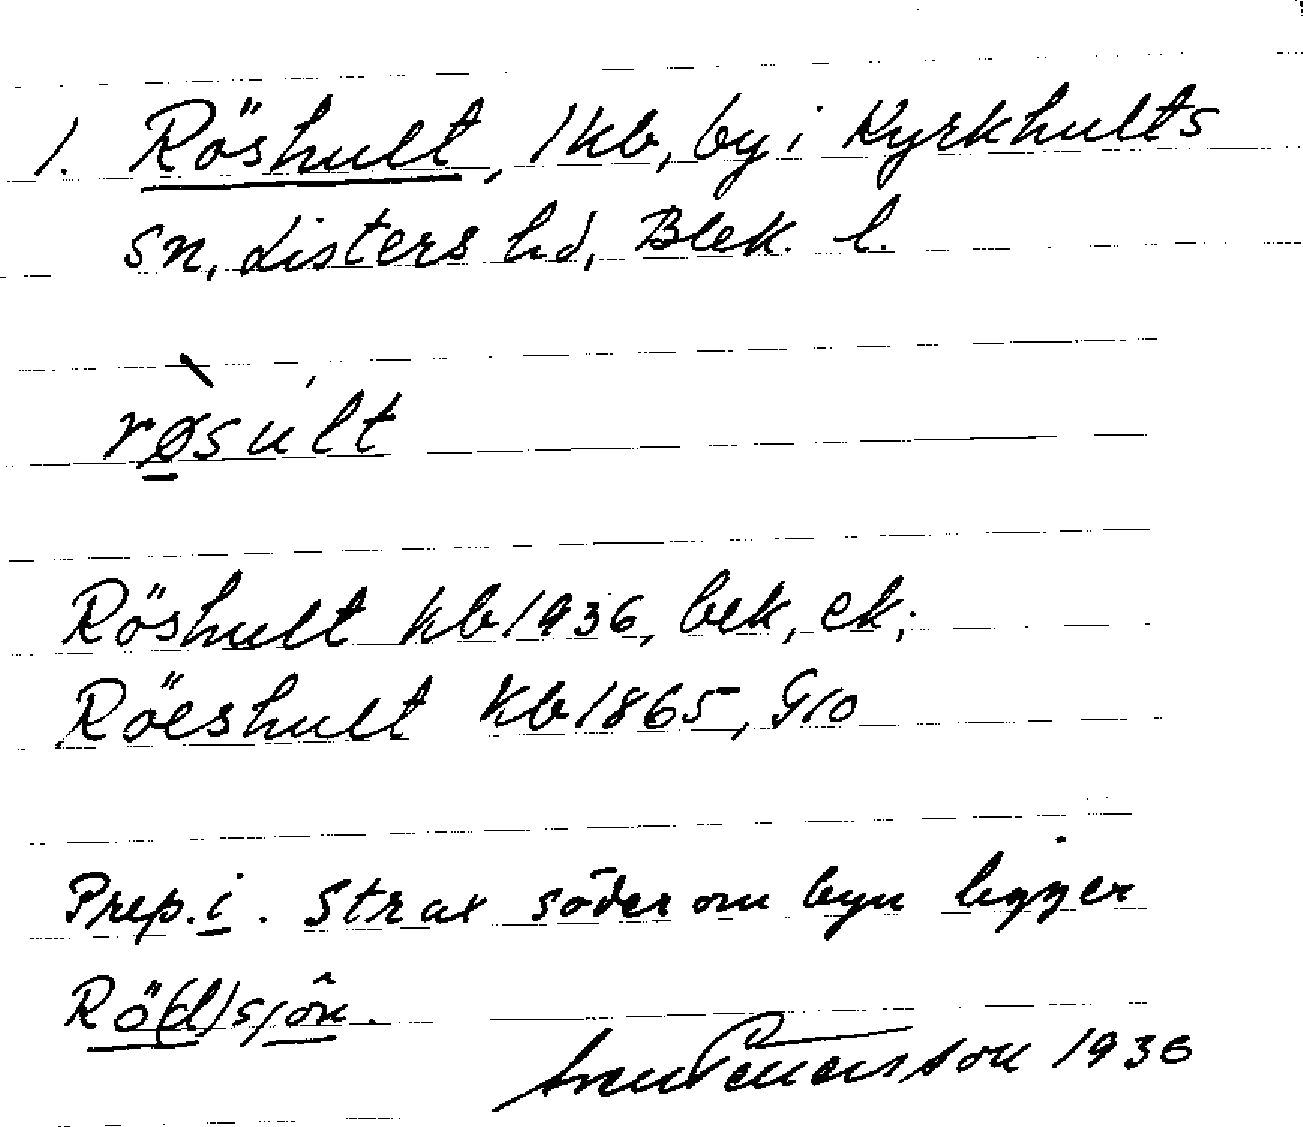 1. Röshult, 1 kb, by i Kyrkhults
sn, Listers hd, Blek. l.
rø̀sult
Röshult kb 1936, bek, ek;
Röeshult kb 1865, G10
Prep. i. Strax söder om byn ligger
Rö(d)sjön.
1936